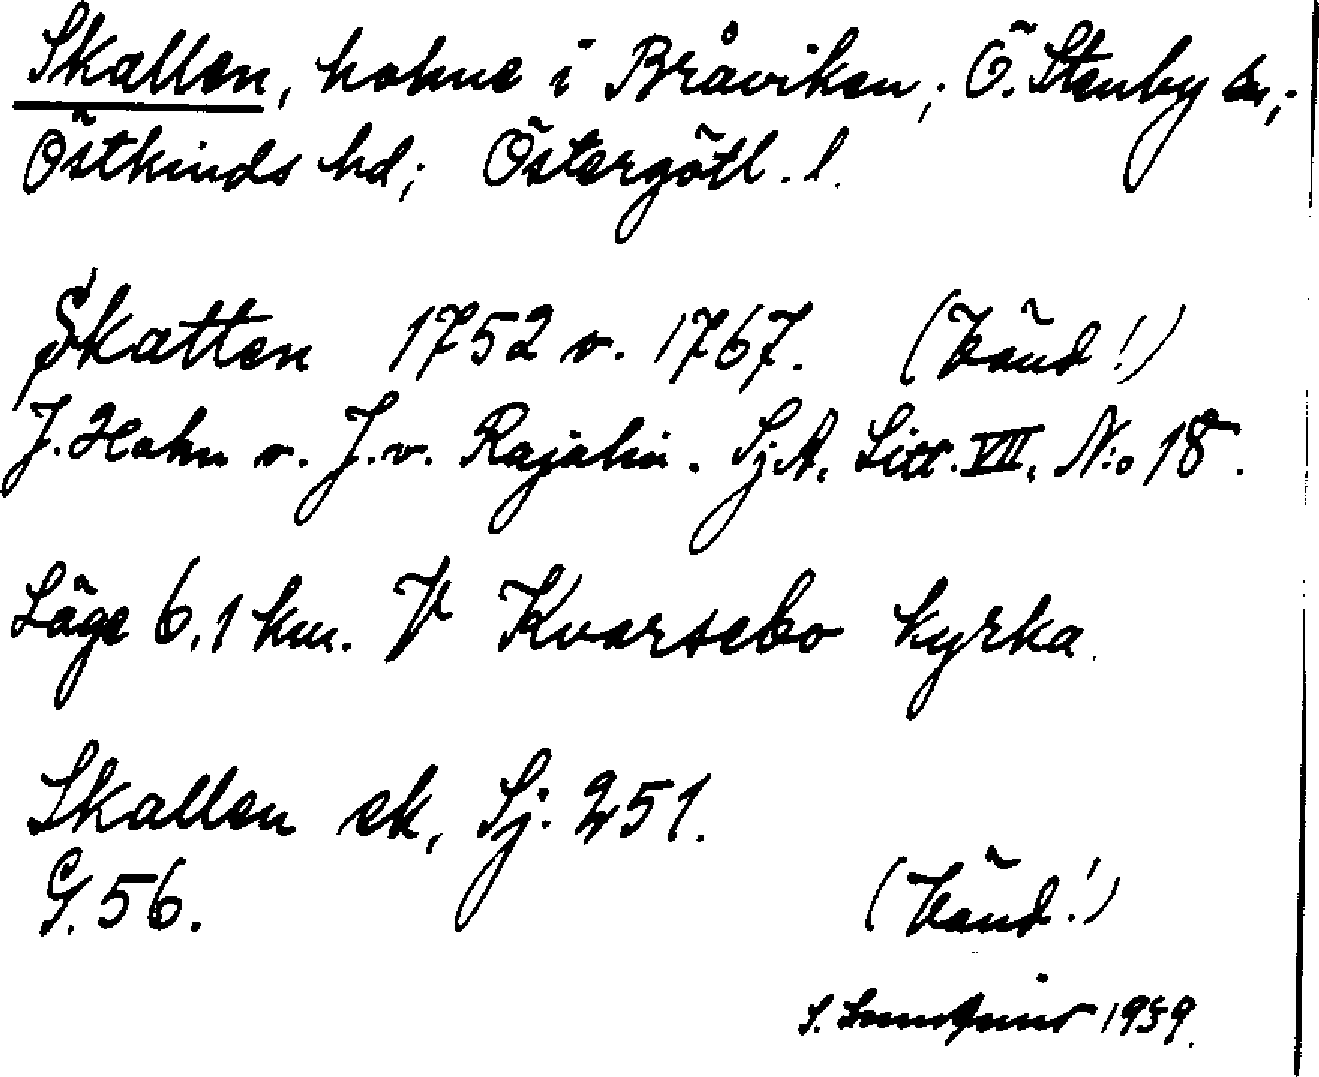 Skallen, holme i Bråviken; Ö. Stenby sn;
Östkinds hd; Östergötl. l.
Skatten 1752 o. 1767. (Vänd!)
J. Hahn o. J. v. Rajalin. Sj.A. Litt. VII. N:o 18.
Läge 6.1 km. V Kvarsebo kyrka.
Skallen ek, Sj. 251.
G. 56. (Vänd!)
S. 1959.